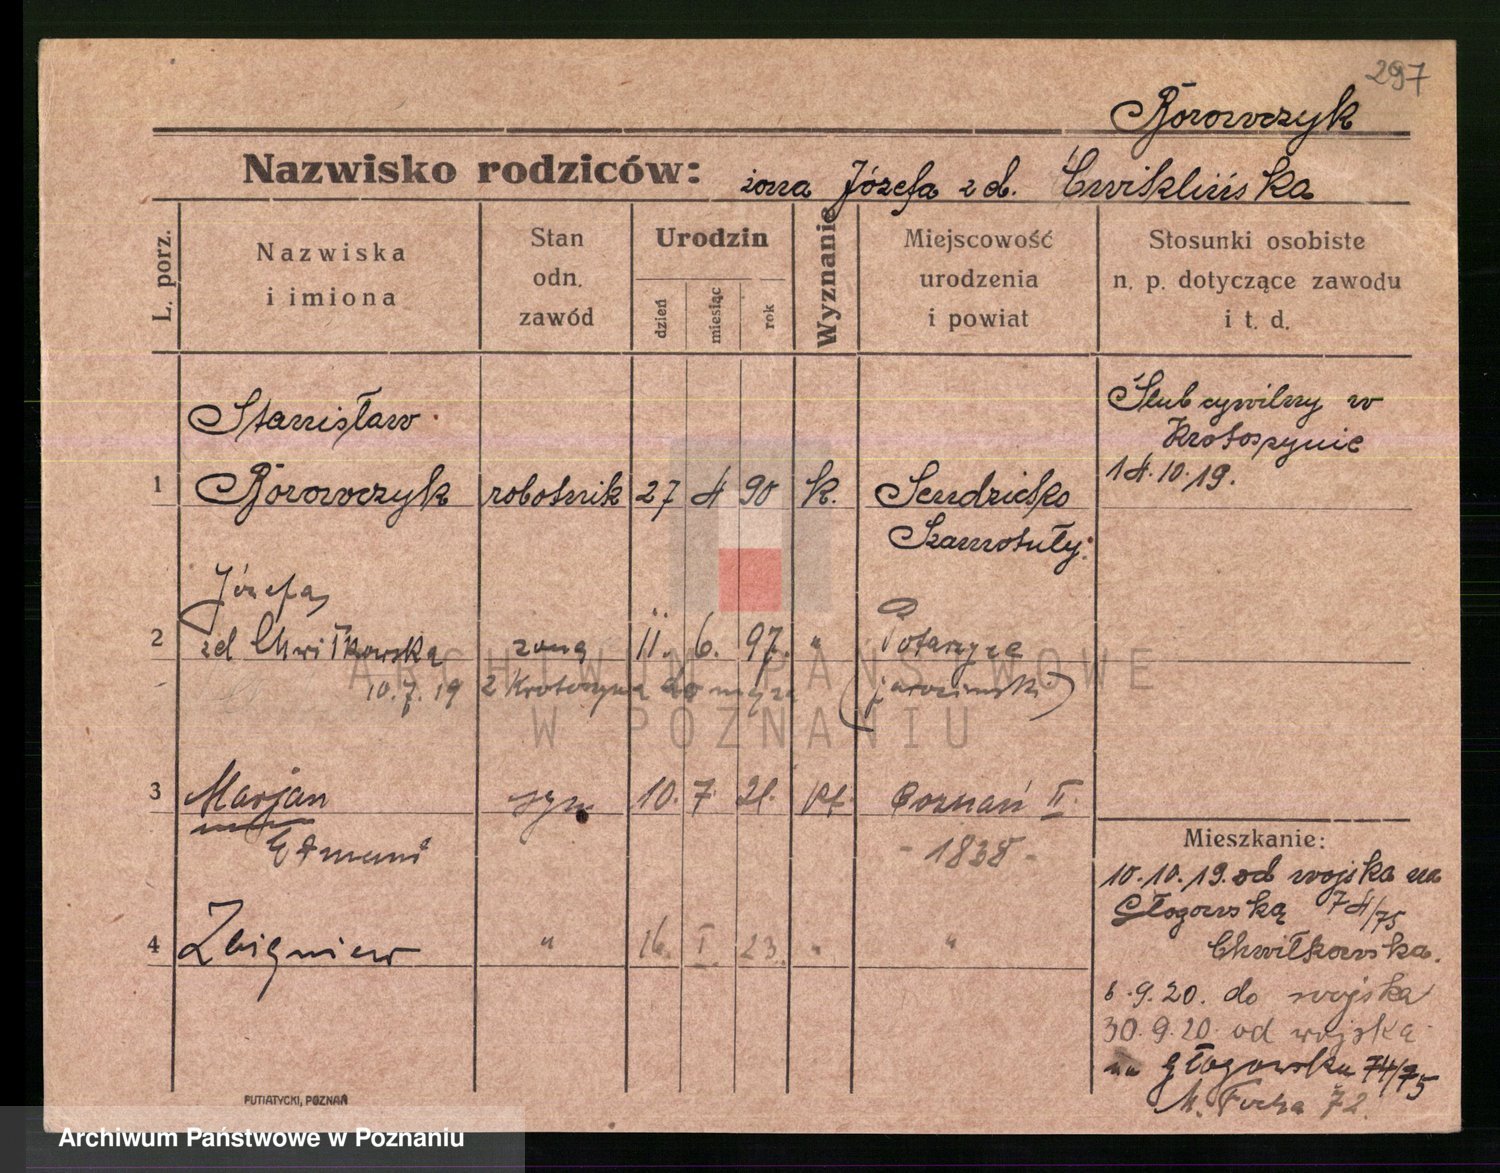 297
Borowczyk
Nazwisko rodziców: żona Józefa z d. Cwiklińska
L. porz.
Nazwiska i imiona
Stan odn. zawód
Urodzin
dzień
miesiąc
rok
Wyznanie
Miejscowość urodzenia i powiat
Stosunki osobiste n. p. dotyczące zawodu i t. d.
Stanisław
1 Borowczyk robotnik 27 4 90 k. Sendzietko
Szamotuły.
Ślub cywilny w
Krotoszynie
14.10.19.
Józefa
2 zd Chwiłkowska żona 11. 6. 97. " Potarzyce
10.7.19 z Krotoszyna do męża (jarocinski)
3 Marjan syn 10. 7. 21. kt. Poznań II.
Edmund - 1838 -
4 Zbigniew " 16. I. 23. " "
Mieszkanie:
10.10.19. od wojska na
Głogowską 74/75
Chwiłkowska.
6.9.20. do wojska
30.9.20 od wojska
na Głogowska 74/75
M. Focha 72.
PUTIATYCKI, POZNAŃ
ARCHIWUM PAŃSTWOWE
W POZNANIU
Archiwum Państwowe w Poznaniu